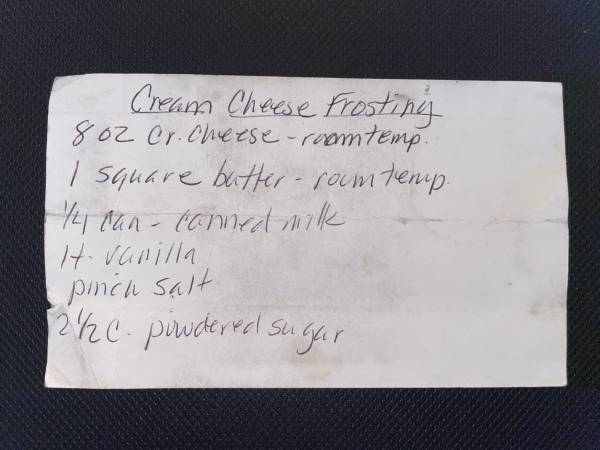 Cream Cheese Frosting
8 oz Cr. Cheese - room temp.
1 square butter - room temp.
1/4 can - canned milk
1t. vanilla
pinch salt
2 1/2 c. powdered sugar